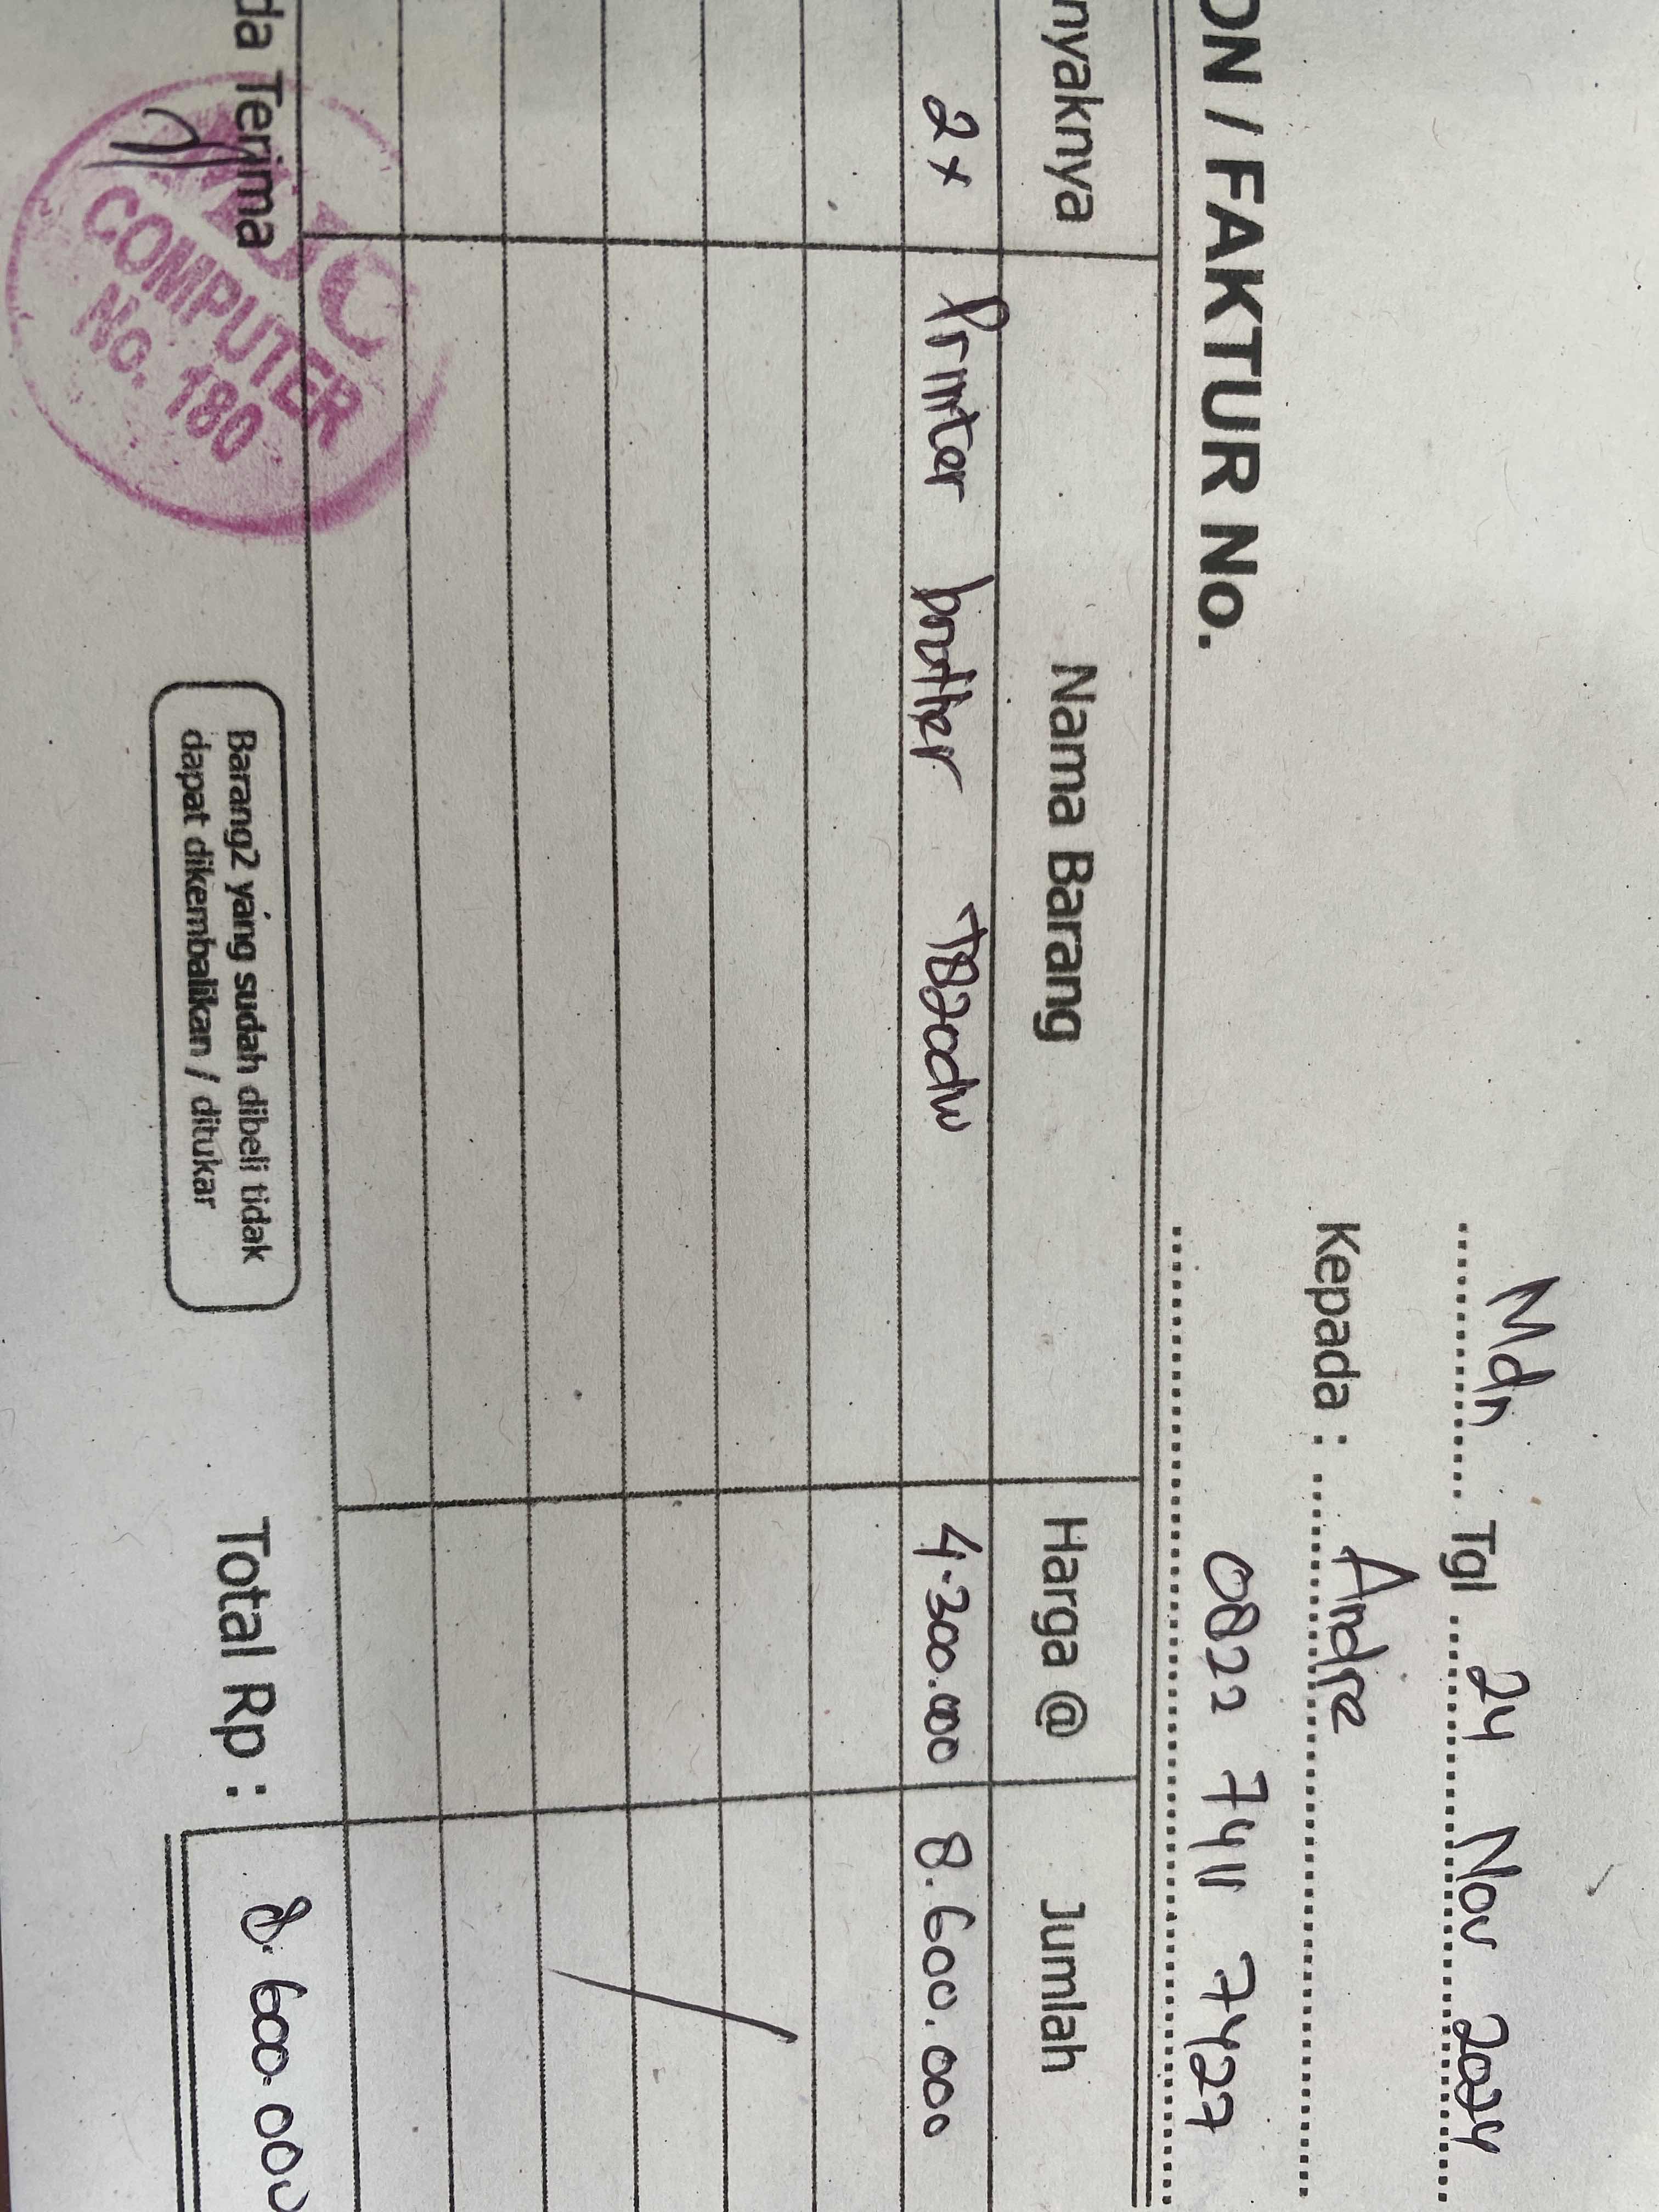 Mdn Tgl 24 Nov 2024
Kepada : Andre
0822 7411 7427
ON / FAKTUR No.
nyaknya Nama Barang Harga @ Jumlah
2 x Printer brother T820dw 4.300.000 8.600.000
da Terima
COMPUTER
No. 180
Barang2 yang sudah dibeli tidak
dapat dikembalikan / ditukar
Total Rp : 8.600.000